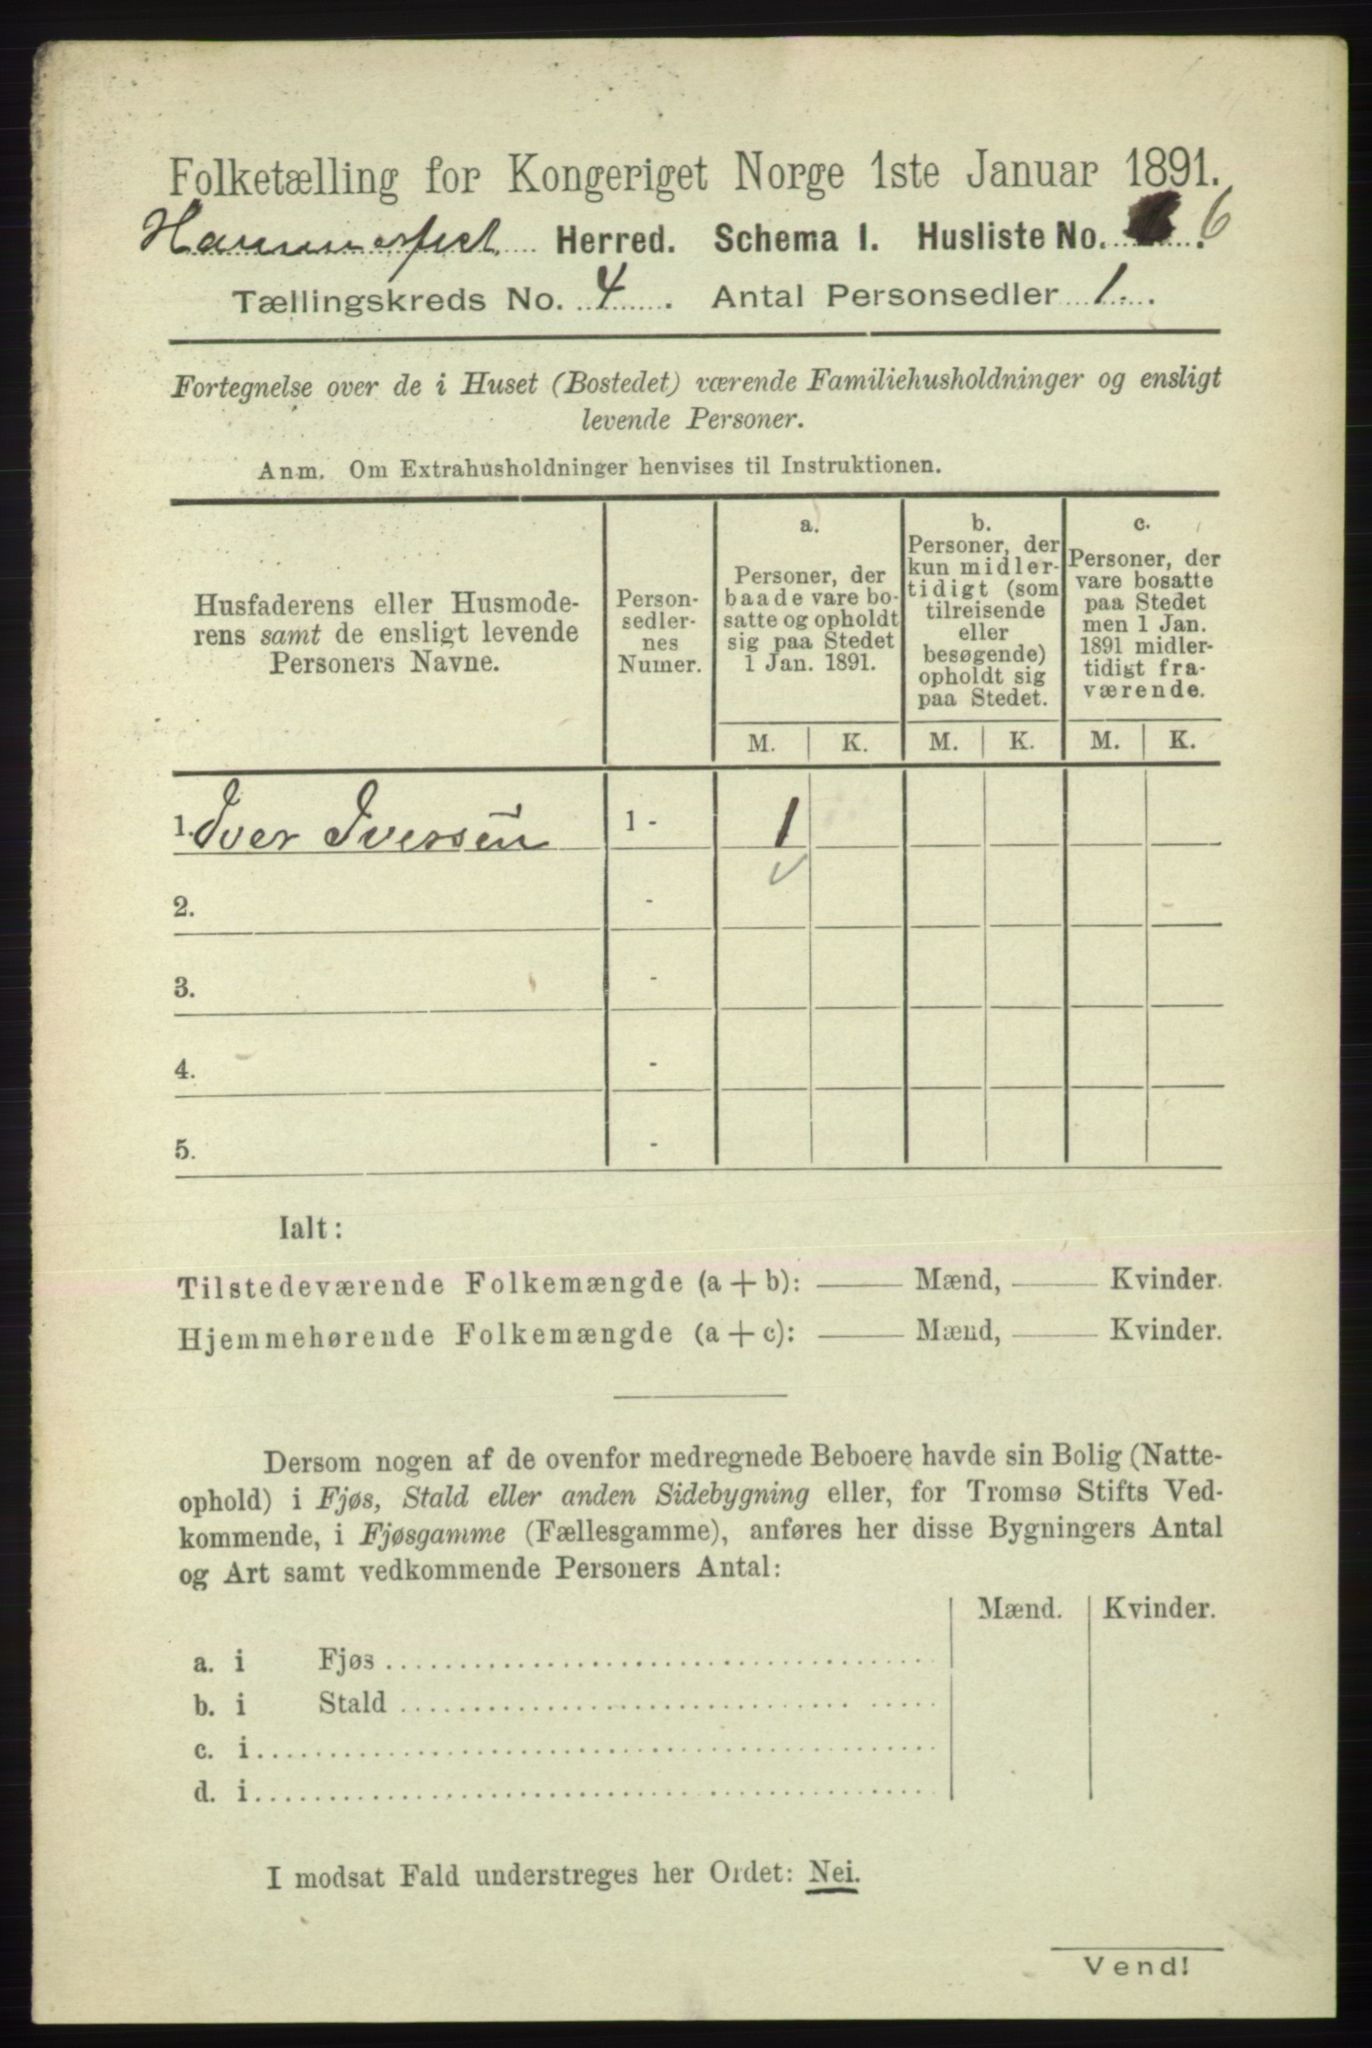 Folketælling for Kongeriget Norge 1ste Januar 1891.
Hammerfest Herred. Schema I. Husliste No. 6.
Tællingskreds No. 4. Antal Personsedler 1.
Fortegnelse over de i Huset (Bostedet) værende Familiehusholdninger og ensligt
levende Personer.
Anm. Om Extrahusholdninger henvises til Instruktionen.
Husfaderens eller Husmode-
rens samt de ensligt levende
Personers Navne.
Person-
sedler-
nes
Numer.
a.
Personer, der
baade vare bo-
satte og opholdt
sig paa Stedet
1 Jan. 1891.
b.
Personer, der
kun midler-
tidigt (som
tilreisende
eller
besøgende)
opholdt sig
paa Stedet.
c.
Personer, der
vare bosatte
paa Stedet
men 1 Jan.
1891 midler-
tidigt fra-
værende.
M. K. M. K. M. K.
1. Iver Iverssen 1 - 1
2. -
3. -
4. -
5. -
Ialt:
Tilstedeværende Folkemængde (a + b): —— Mænd, —— Kvinder.
Hjemmehørende Folkemængde (a + c): —— Mænd, —— Kvinder.
Dersom nogen af de ovenfor medregnede Beboere havde sin Bolig (Natte-
ophold) i Fjøs, Stald eller anden Sidebygning eller, for Tromsø Stifts Ved-
kommende, i Fjøsgamme (Fællesgamme), anføres her disse Bygningers Antal
og Art samt vedkommende Personers Antal:
Mænd. Kvinder.
a. i Fjøs
b. i Stald
c. i
d. i
I modsat Fald understreges her Ordet: Nei.
Vend!